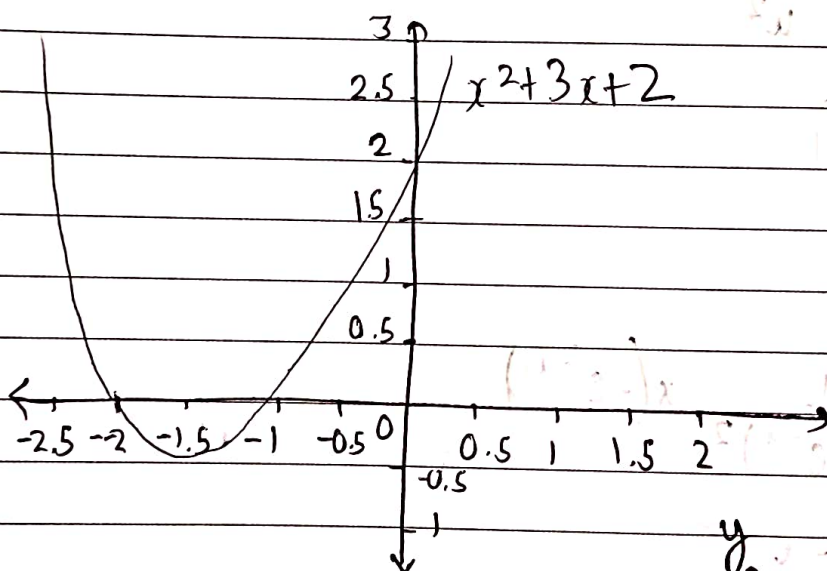 3
2.5 x²+3x+2
2
1.5
1
0.5
-2.5 -2 -1.5 -1 -0.5 0 0.5 1 1.5 2
-0.5
-1
y